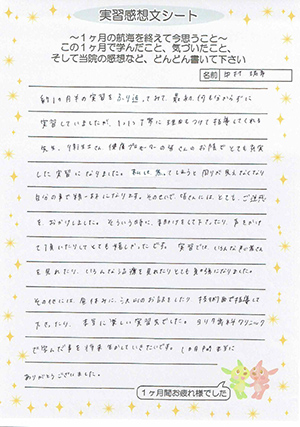 実習感想文シート
～1ヶ月の航海を終えて今思うこと～
この1ヶ月で学んだこと、気づいたこと、
そして当院の感想など、どんどん書いて下さい
名前
約1ヶ月半の実習をふり返ってみて、最初、何も分からずに
実習していましたが、1つ1つ丁寧に理由もつけて指導してくれる
先生、 のお陰でとても充実
した実習になりました。私は、焦ってしまうと周りが見えなくなり
自分の事で精一杯になります。そのせいで、皆さんには、とても、ご迷惑
を、おかけしました。そういう時に、手助けをして下さったり、声をかけ
て頂いたりしてとても嬉しかったです。実習では、いろんな
を見れたり、いろんな治療を見れたりとても勉強になりました。
その他には、昼休みに、 お話をしたり、技術面で指導して
下さったり、本当に楽しい実習先でした。 クリニック
で学んだ事を将来生かしていきたいです。 本当に
ありがとうございました。
1ヶ月間お疲れ様でした